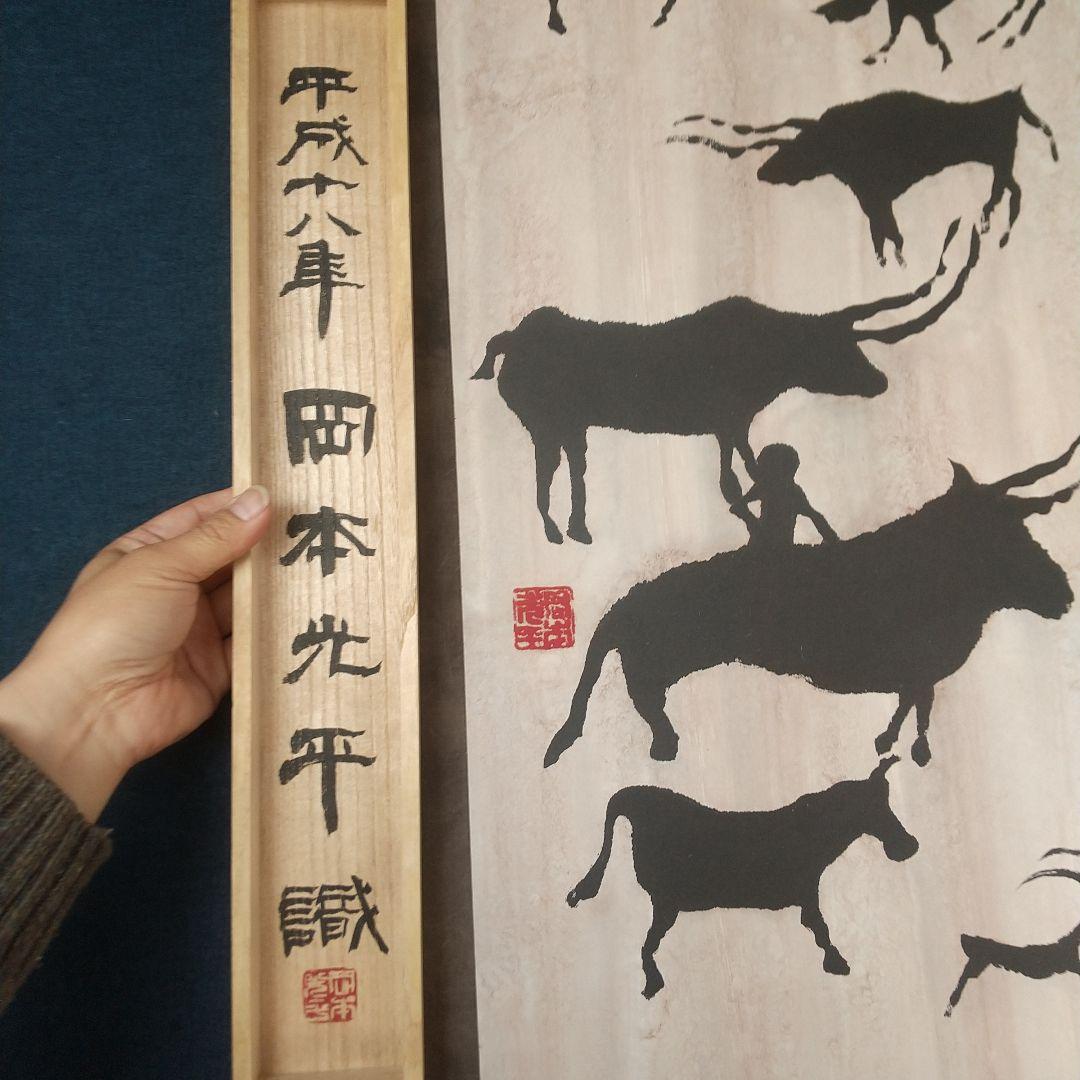 平成十八年 岡本光平 識